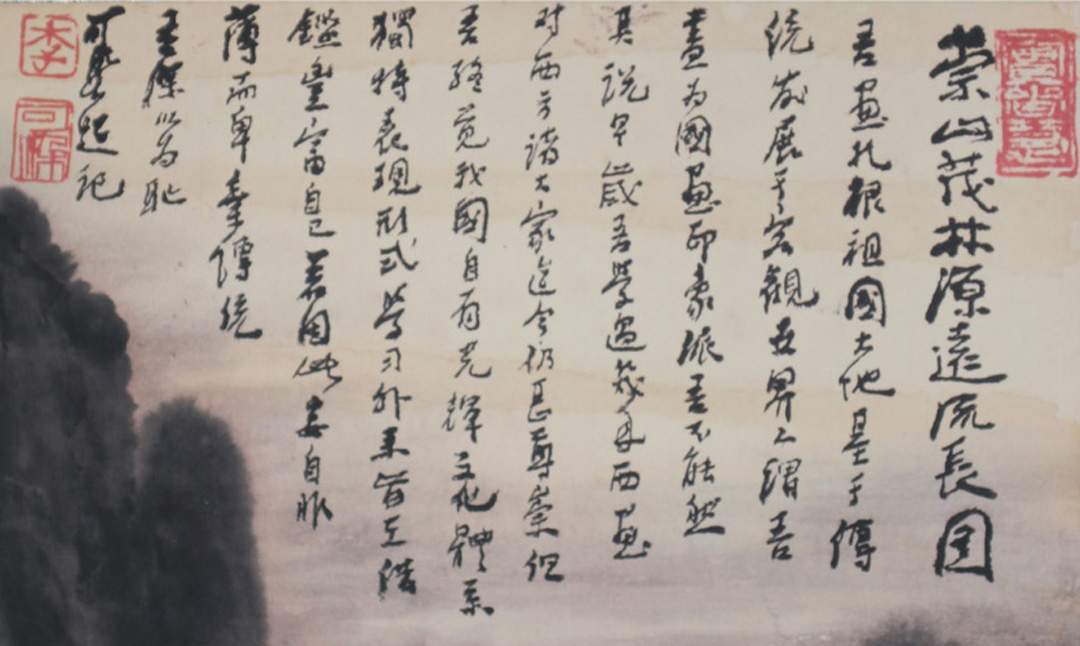 崇山茂林源遠流長図
吾畫扎根祖國大地基于傳
統發展于客觀世界人謂吾
畫為國畫印象派吾不能然
其説早歲吾學過幾年西畫
对西方諸大家迄今仍甚尊崇但
吾終覺我國自有光輝文化體系
獨特表現形式學習外来旨在借
鑑豐富自己若因此妄自菲
薄而卑棄傳統
吾深以為恥
可染題記
李
可染